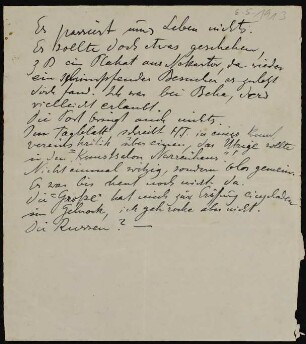 5.5.1913
Es passiert uns Leben nichts.
Es sollte doch etwas geschehen,
z B ein Plakat aus, da wieder
ein schimpfender Besucher es zuletzt
doch fand! Ich war bei Beha,
vielleicht erlaubt.
Die Post bringt auch nichts.
Im Tageblatt schreibt HT in einer Kunst
vereinskritik über einen, das Übrige sollte
in den "Kunstsalon Narrenhaus".
Nicht einmal rotzig, sondern blos gemein.
Er war bis heut noch nicht da.
Die "Große" hat mich zur Eröffnung eingeladen
im Gehrock, ich geh aber nicht.
Die Russen? —